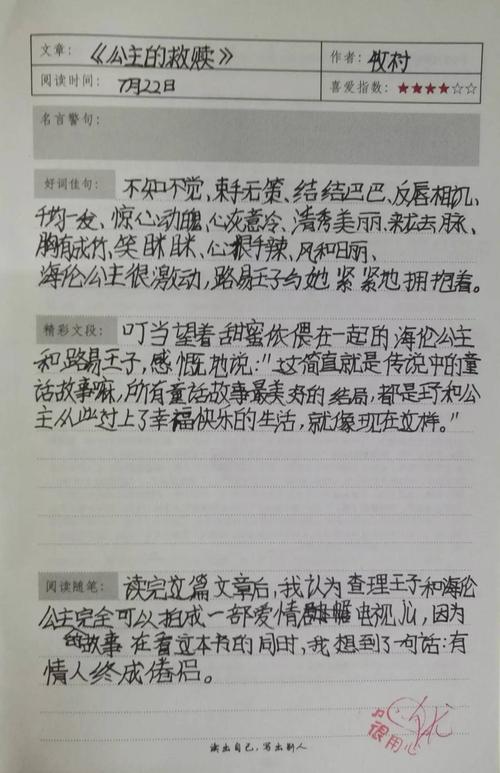 文章： 《公主的救赎》 作者： 牧村
阅读时间： 7月22日 喜爱指数：★★★★☆☆
名言警句：
好词佳句： 不知不觉、束手无策、结结巴巴、反唇相讥、
千钧一发、惊心动魄、心灰意冷、清秀美丽、来龙去脉、
胸有成竹、笑眯眯、心狠手辣、风和日丽、
海伦公主很激动，路易王子与她紧紧地拥抱着。
精彩文段： 叮当望着甜蜜依偎在一起的海伦公主
和路易王子，感慨地说："这简直就是传说中的童
话故事嘛，所有童话故事最美好的结局，都是王子和公
主从此过上了幸福快乐的生活，就像现在这样。"
阅读随笔： 读完这篇文章后，我认为查理王子和海伦
公主完全可以拍成一部爱情电视，因为
的故事 在看这本书的同时，我想到了一句话：有
情人终成倦侣。
优
很用心
读出自己，写出别人